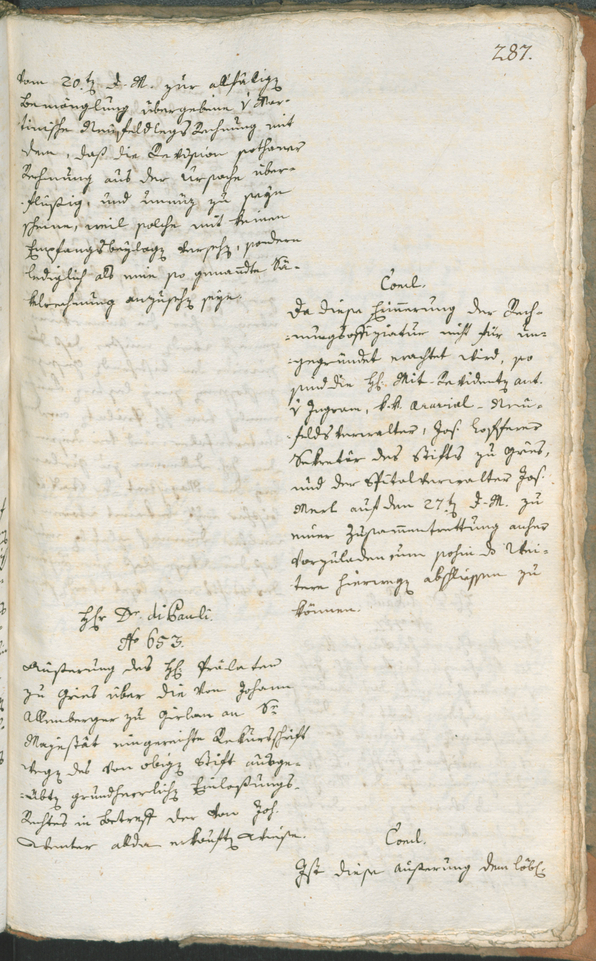 287.
vom 20.ten d. M. zur allfälligen
Bemänglung übergebene v Mar-
tinische Neufeldlegs Rechnung mit
dem, daß die Revision sothaner
Rechnung aus der Ursache über-
flüßig, und unnüz zu seyn
scheine, weil solche mit keinen
Empfangsbeylagen versehen, sondern
lediglich als eine so genannte Sä-
kelrechnung anzusehen seye.
Concl.
Da diese Erinnerung der Rech-
nungsoffiziatur nicht für un-
gegründet erachtet wird, so
sind die HH. Mit-Revidenten ant.
v Ingram, k. k. Aerarial-Neu-
felds Verwalter, Jos.
Sekretär des Stifts zu Gries,
und der Spitalverwalter Jos.
Merl auf den 27.ten d. M. zu
einer Zusammentrettung anher
vorzuladen um sohin das Wei-
tere hierwegen abschlüssen zu
können.
Hr. Dr. di Pauli.
No 653.
Äußerung des H. Prälaten
zu Gries über die von Johann
Altenberger zu Girlan an Sr.
Majestät eingereichte Rekursschrift
wegen des von obigen Stift ausge-
übten grundherrlichen Einlosungs-
Rechtes in Betreff der von Joh.
alda erkauften Wiese.
Concl.
Ist diese äußerung dem löbl.